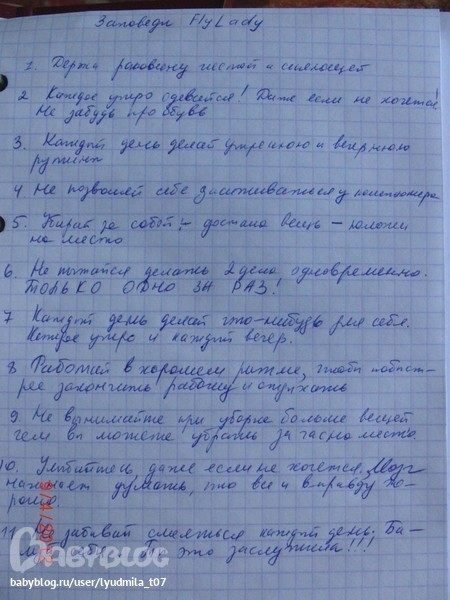 Заповеди FlyLady
1. Держи раковину чистой и сияющей
2. Каждое утро одевайся! Даже если не хочется!
Не забудь про обувь
3. Каждый день делай утреннюю и вечернюю
рутины
4. Не позволяй себе засиживаться у компьютера
5. Убирай за собой! – достала вещь – положи
на место
6. Не пытайся делать 2 дела одновременно.
ТОЛЬКО ОДНО ЗА РАЗ!
7 Каждый день делай что-нибудь для себя.
Каждое утро и каждый вечер.
8 Работай в хорошем ритме, чтобы побыст-
рее закончить работу и отдыхать
9 Не вынимайте при уборке больше вещей
чем вы можете убрать за час на место.
10. Улыбайтесь даже если не хочется. Мозг
начинает думать, что все и вправду хо-
рошо.
11. забывай смеяться каждый день. Ба-
Ты это заслужила!!!
BABYBLOG
babyblog.ru/user/lyudmila_t07